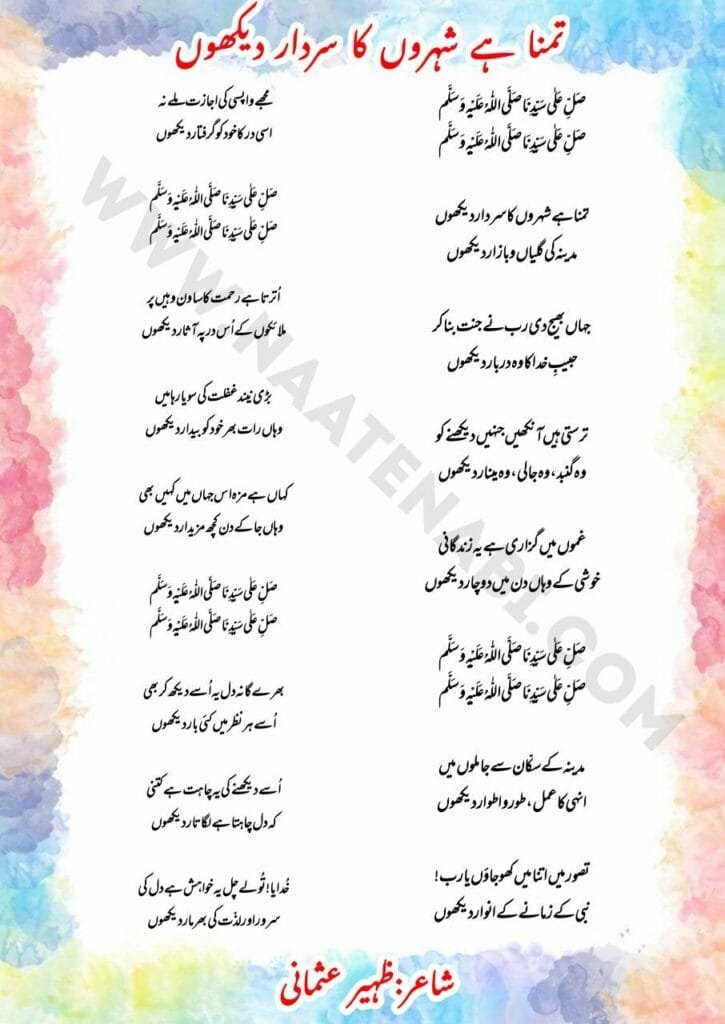 تمنا ہے شہروں کا سردار دیکھوں
صَلِّ عَلٰی سَیِّدِنَا صَلَّی اللّٰہُ عَلَیْہِ وَسَلَّم
صَلِّ عَلٰی سَیِّدِنَا صَلَّی اللّٰہُ عَلَیْہِ وَسَلَّم
تمنا ہے شہروں کا سردار دیکھوں
مدینہ کی گلیاں و بازار دیکھوں
جہاں بھیج دی رب نے جنت بنا کر
حبیبِ خدا کا وہ دربار دیکھوں
ترستی ہیں آنکھیں جنہیں دیکھنے کو
وہ گنبد، وہ جالی، وہ مینار دیکھوں
غموں میں گزاری ہے یہ زندگانی
خوشی کے وہاں دن میں دو چار دیکھوں
صَلِّ عَلٰی سَیِّدِنَا صَلَّی اللّٰہُ عَلَیْہِ وَسَلَّم
صَلِّ عَلٰی سَیِّدِنَا صَلَّی اللّٰہُ عَلَیْہِ وَسَلَّم
مدینہ کے سکّان سے جا ملوں میں
انہی کا عمل، طور و اطوار دیکھوں
تصور میں اتنا میں کھو جاؤں یا رب!
نبی کے زمانے کے انوار دیکھوں
مجھے واپسی کی اجازت ملے نہ
اسی در کا خود کو گرفتار دیکھوں
صَلِّ عَلٰی سَیِّدِنَا صَلَّی اللّٰہُ عَلَیْہِ وَسَلَّم
صَلِّ عَلٰی سَیِّدِنَا صَلَّی اللّٰہُ عَلَیْہِ وَسَلَّم
اُترتا ہے رحمت کا ساون وہیں پر
ملائکوں کے اُس در پہ آثار دیکھوں
بڑی نیند غفلت کی سویا رہا میں
وہاں رات بھر خود کو بیدار دیکھوں
کہاں ہے مزہ اس جہاں میں کہیں بھی
وہاں جا کے دن کچھ مزیدار دیکھوں
صَلِّ عَلٰی سَیِّدِنَا صَلَّی اللّٰہُ عَلَیْہِ وَسَلَّم
صَلِّ عَلٰی سَیِّدِنَا صَلَّی اللّٰہُ عَلَیْہِ وَسَلَّم
بھرے گا نہ دل یہ اُسے دیکھ کر بھی
اُسے ہر نظر میں کئی بار دیکھوں
اُسے دیکھنے کی یہ چاہت ہے کتنی
کہ دل چاہتا ہے لگاتار دیکھوں
خُدایا! تُو لے چل یہ خواہش ہے دل کی
سرور اور لذّت کی بھرمار دیکھوں
شاعر: ظہیر عثمانی
WWW.NAATENABI.COM